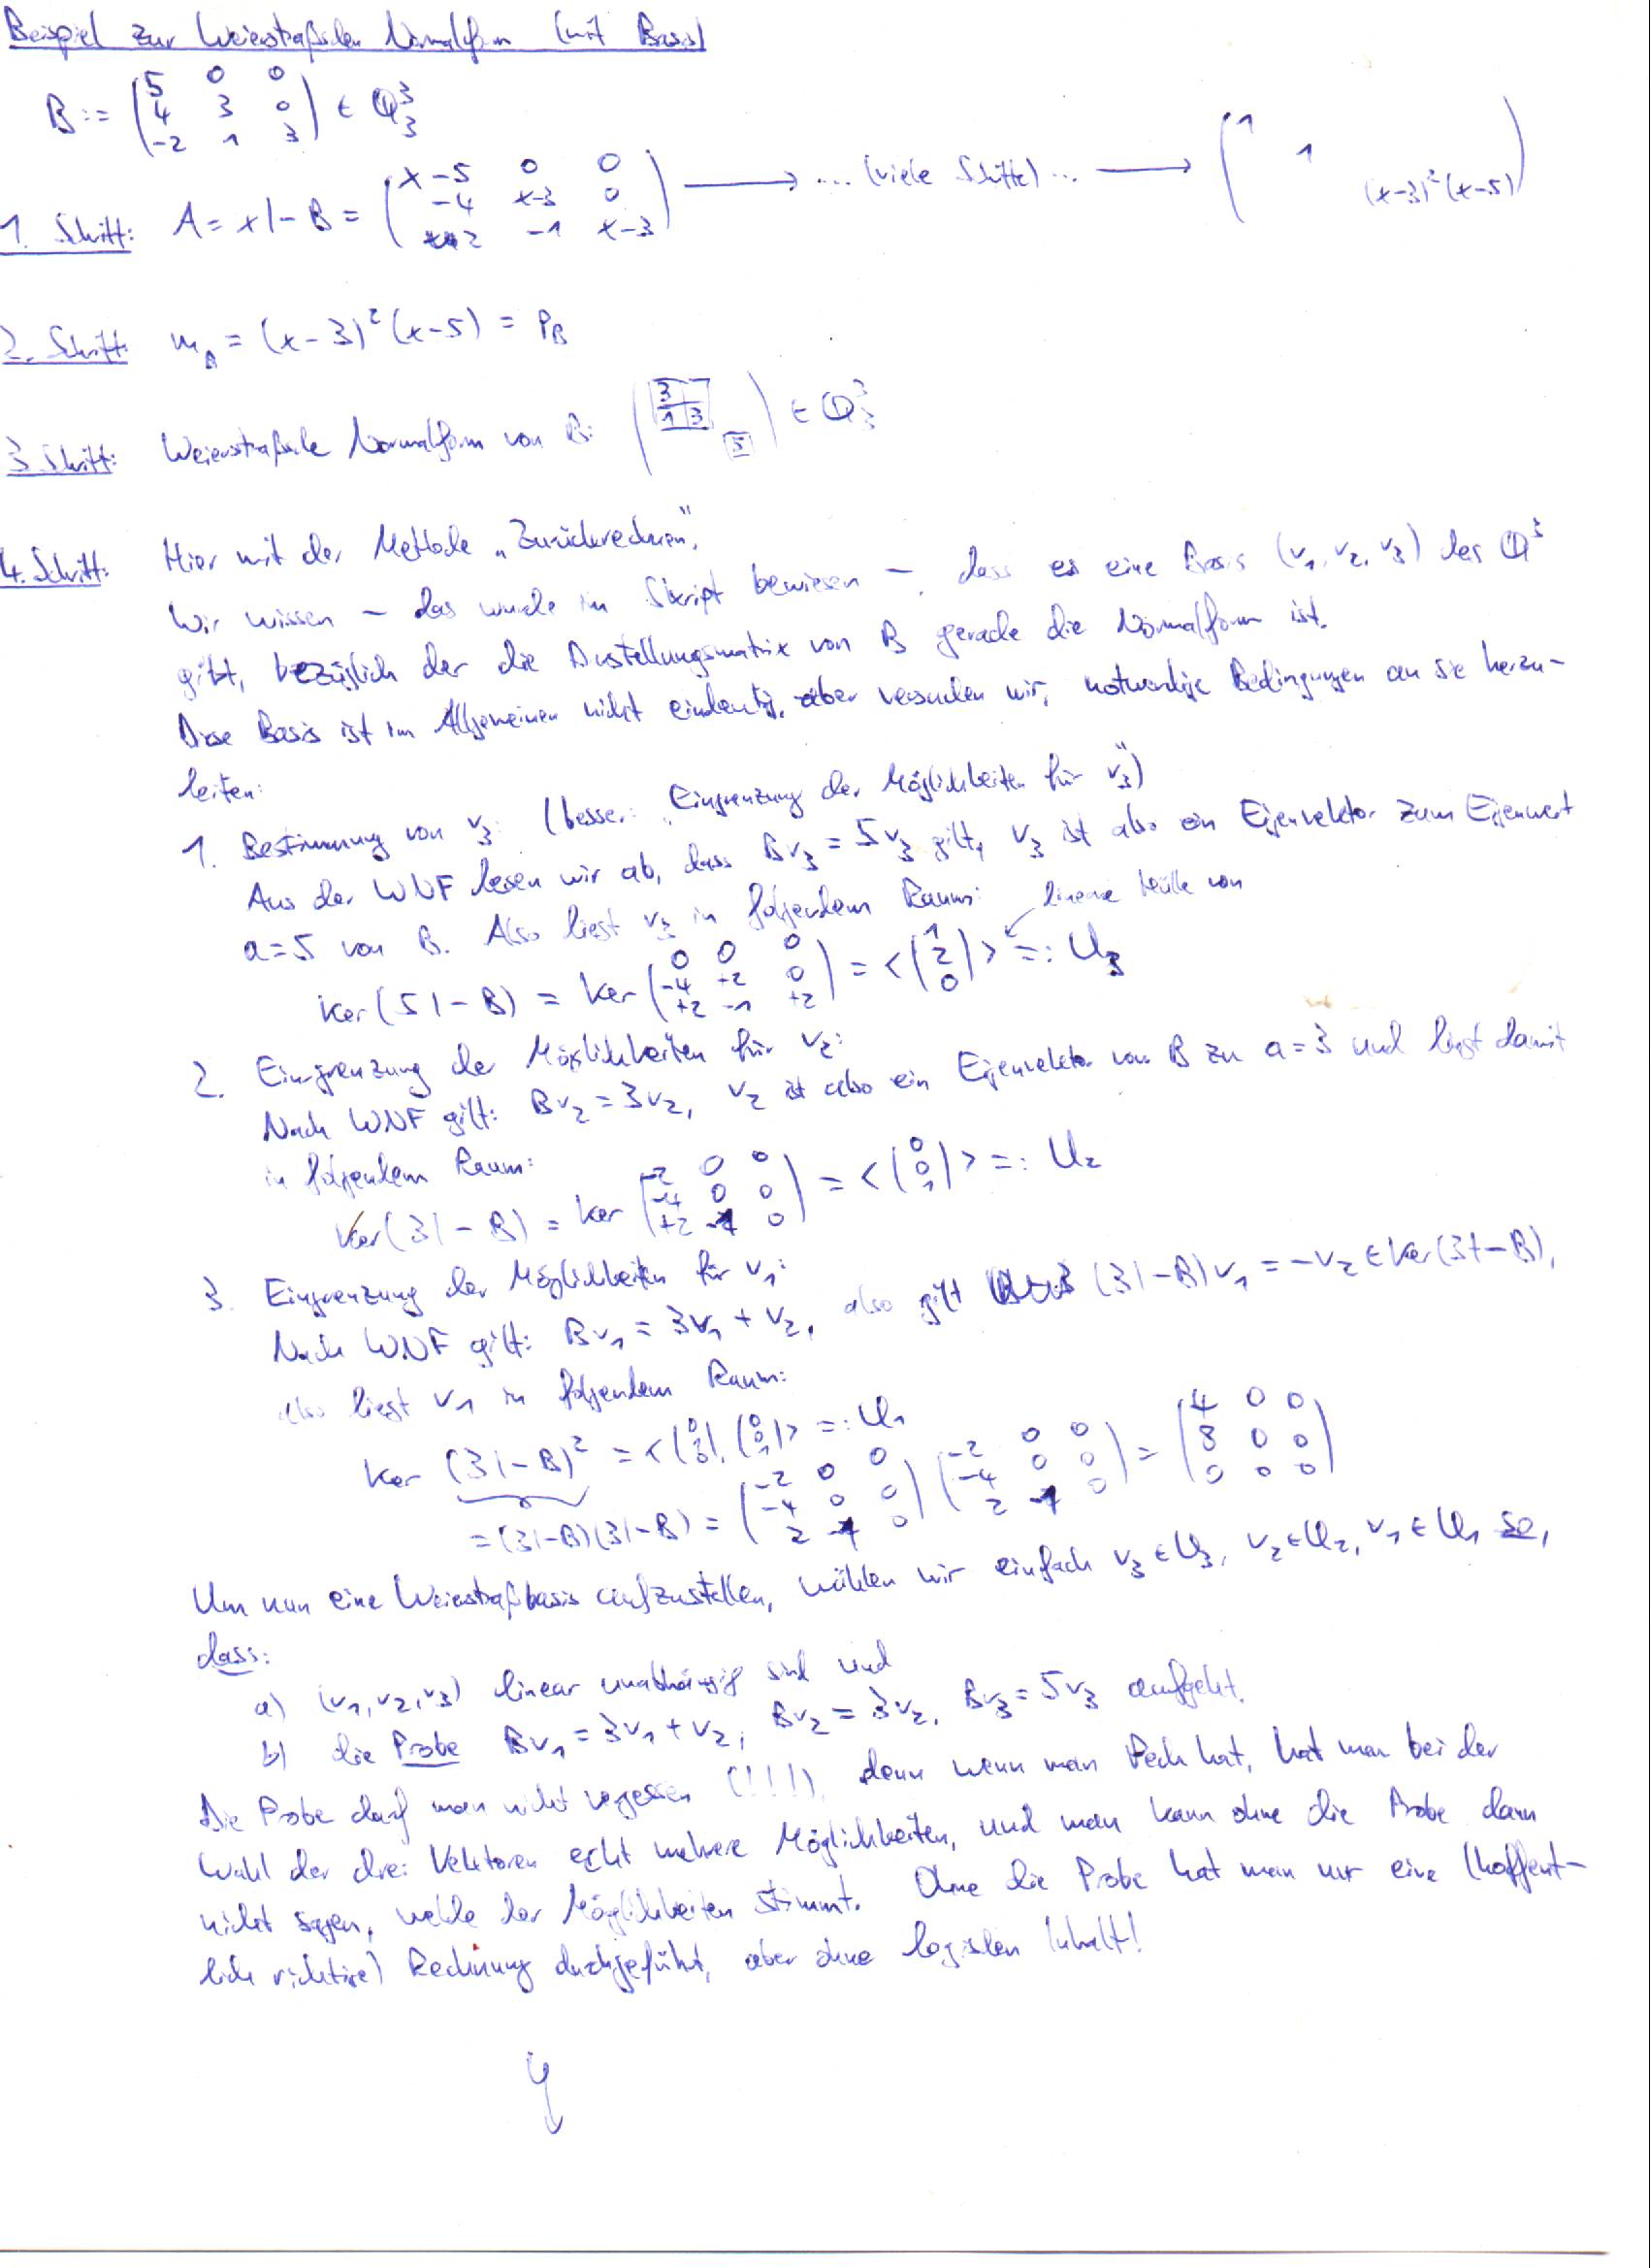 Beispiel zur Weierstraßschen Normalform (mit Basis)
B := (5 0 0; 4 3 0; -2 1 3) ∈ ℚ³₃
1. Schritt: A = xI - B = (x-5 0 0; -4 x-3 0; 2 -1 x-3) ⟶ ... (viele Schritte) ... ⟶ (1; 1; (x-3)²(x-5))
2. Schritt: m_B = (x-3)²(x-5) = P_B
3. Schritt: Weierstraßsche Normalform von B: (3; 1 3; 5) ∈ ℚ³₃
4. Schritt: Hier mit der Methode „Zurückrechnen“.
Wir wissen - das wurde im Skript bewiesen -, dass es eine Basis (v₁, v₂, v₃) des ℚ³
gibt, bezüglich der die Darstellungsmatrix von B gerade die Normalform ist.
Diese Basis ist im Allgemeinen nicht eindeutig, aber versuchen wir, notwendige Bedingungen an sie herzu-
leiten:
1. Bestimmung von v₃: (besser: „Eingrenzung der Möglichkeiten für v₃“)
Aus der WNF lesen wir ab, dass Bv₃ = 5v₃ gilt, v₃ ist also ein Eigenvektor zum Eigenwert
a=5 von B. Also liegt v₃ in folgendem Raum: lineare Hülle von
ker(5I - B) = ker (0 0 0; -4 +2 0; +2 -1 +2) = <(1; 2; 0)> =: U₃
2. Eingrenzung der Möglichkeiten für v₂:
Nach WNF gilt: Bv₂ = 3v₂, v₂ ist also ein Eigenvektor von B zu a=3 und liegt damit
in folgendem Raum:
Ker(3I - B) = ker (-2 0 0; -4 0 0; +2 -1 0) = <(0; 0; 1)> =: U₂
3. Eingrenzung der Möglichkeiten für v₁:
Nach WNF gilt: Bv₁ = 3v₁ + v₂, also gilt (3I - B)v₁ = -v₂ ∈ Ker(3I - B),
also liegt v₁ in folgendem Raum:
Ker (3I - B)² = <(0; 3; 0), (0; 0; 1)> =: U₁
= (3I-B)(3I-B) = (-2 0 0; -4 0 0; 2 -1 0) (-2 0 0; -4 0 0; 2 -1 0) = (4 0 0; 8 0 0; 0 0 0)
Um nun eine Weierstraßbasis aufzustellen, wählen wir einfach v₃ ∈ U₃, v₂ ∈ U₂, v₁ ∈ U₁ so,
dass:
a) (v₁, v₂, v₃) linear unabhängig sind und
b) die Probe Bv₁ = 3v₁ + v₂, Bv₂ = 3v₂, Bv₃ = 5v₃ aufgeht.
Die Probe darf man nicht vergessen (!!!), denn wenn man Pech hat, hat man bei der
Wahl der drei Vektoren echt mehrere Möglichkeiten, und man kann ohne die Probe dann
nicht sagen, welche der Möglichkeiten stimmt. Ohne die Probe hat man nur eine (hoffent-
lich richtige) Rechnung durchgeführt, aber ohne logischen Inhalt!